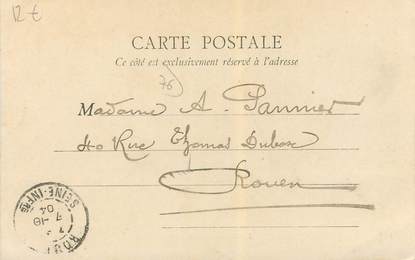 12 €
CARTE POSTALE
Ce côté est exclusivement réservé à l'adresse
76
Madame A. Pannier
40 Rue Thomas Dubosc
Rouen
SEINE-INFRE
7
04